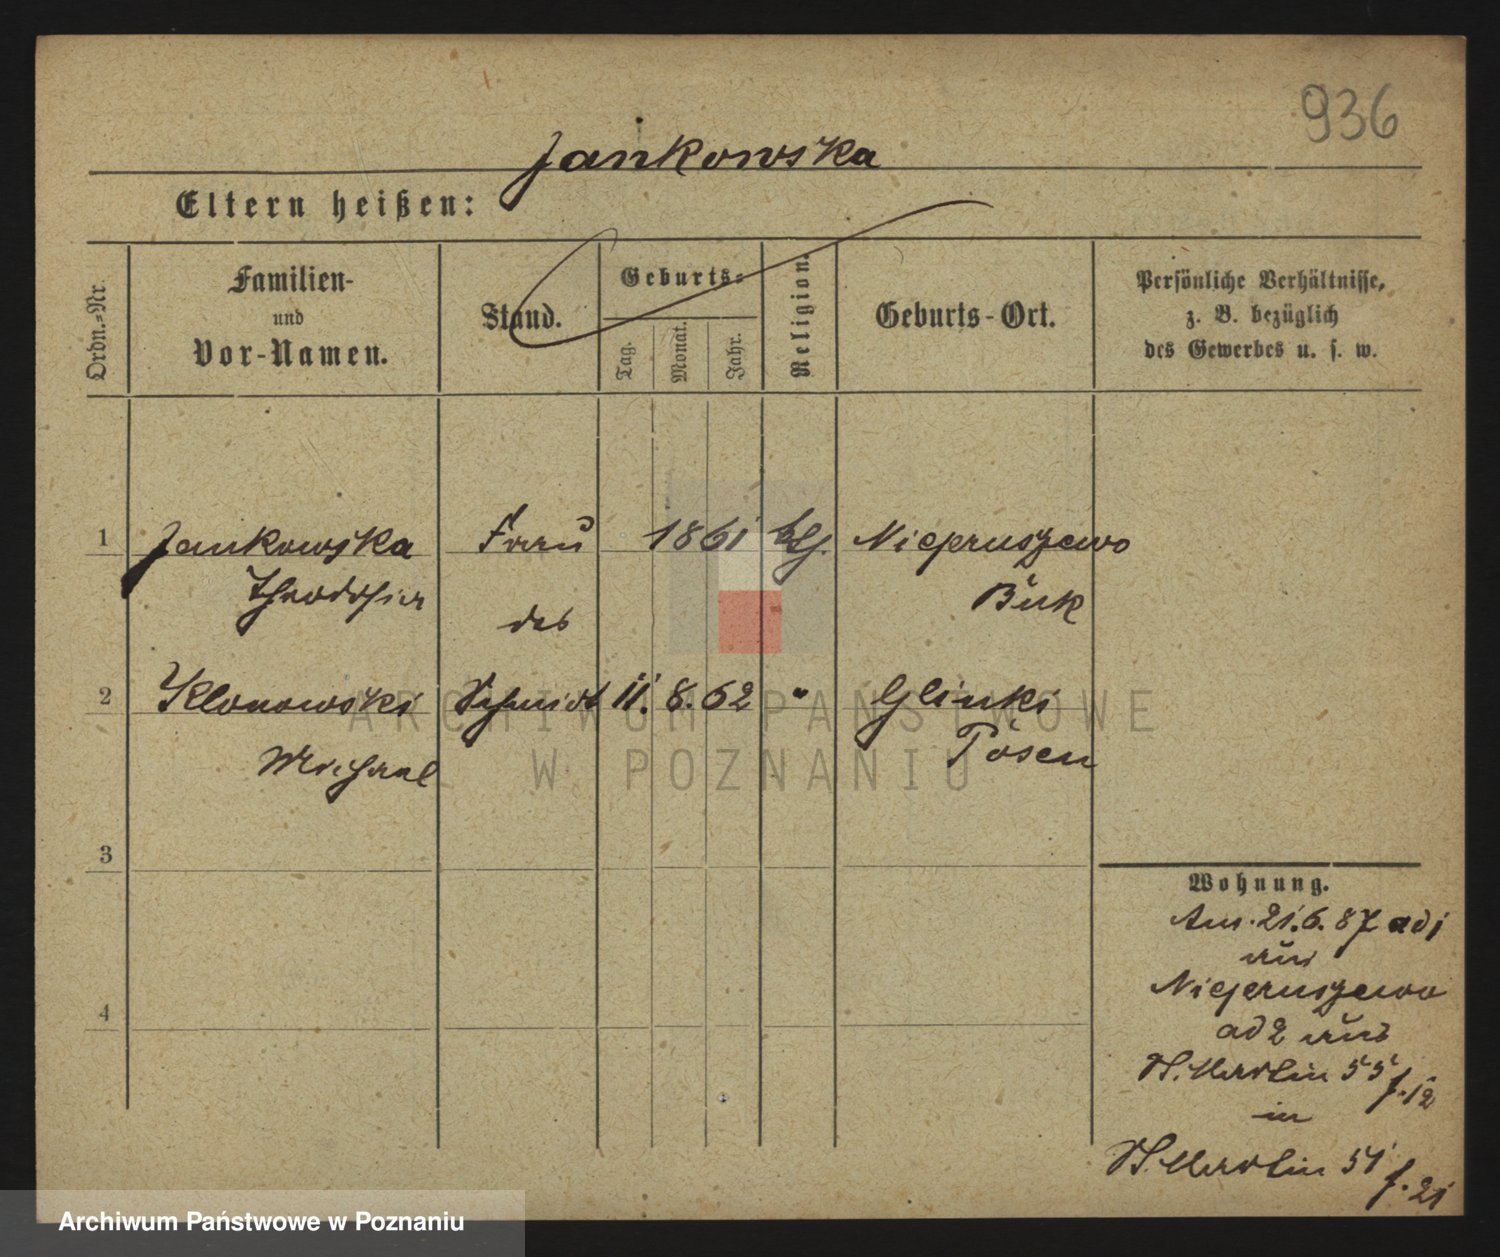 936
Jankowska
Eltern heißen:
Ordn.-Nr.
Familien-
und
Vor-Namen.
Stand.
Geburts-
Tag.
Monat.
Jahr.
Religion.
Geburts-Ort.
Persönliche Verhältnisse,
z. B. bezüglich
des Gewerbes u. s. w.
1 Jankowska Frau 1861 Niepruszewo
Theodosia des Buk
2 Klonowski Schmidt 11. 8. 62 " Glinki
Michael Posen
3
4
Wohnung.
21. 6. 87 ad 1
aus
Niepruszewo
ad 2 aus
St. Martin 55 f. 12
in
St. Martin 51 f. 21
ARCHIWUM PAŃSTWOWE
W POZNANIU
Archiwum Państwowe w Poznaniu